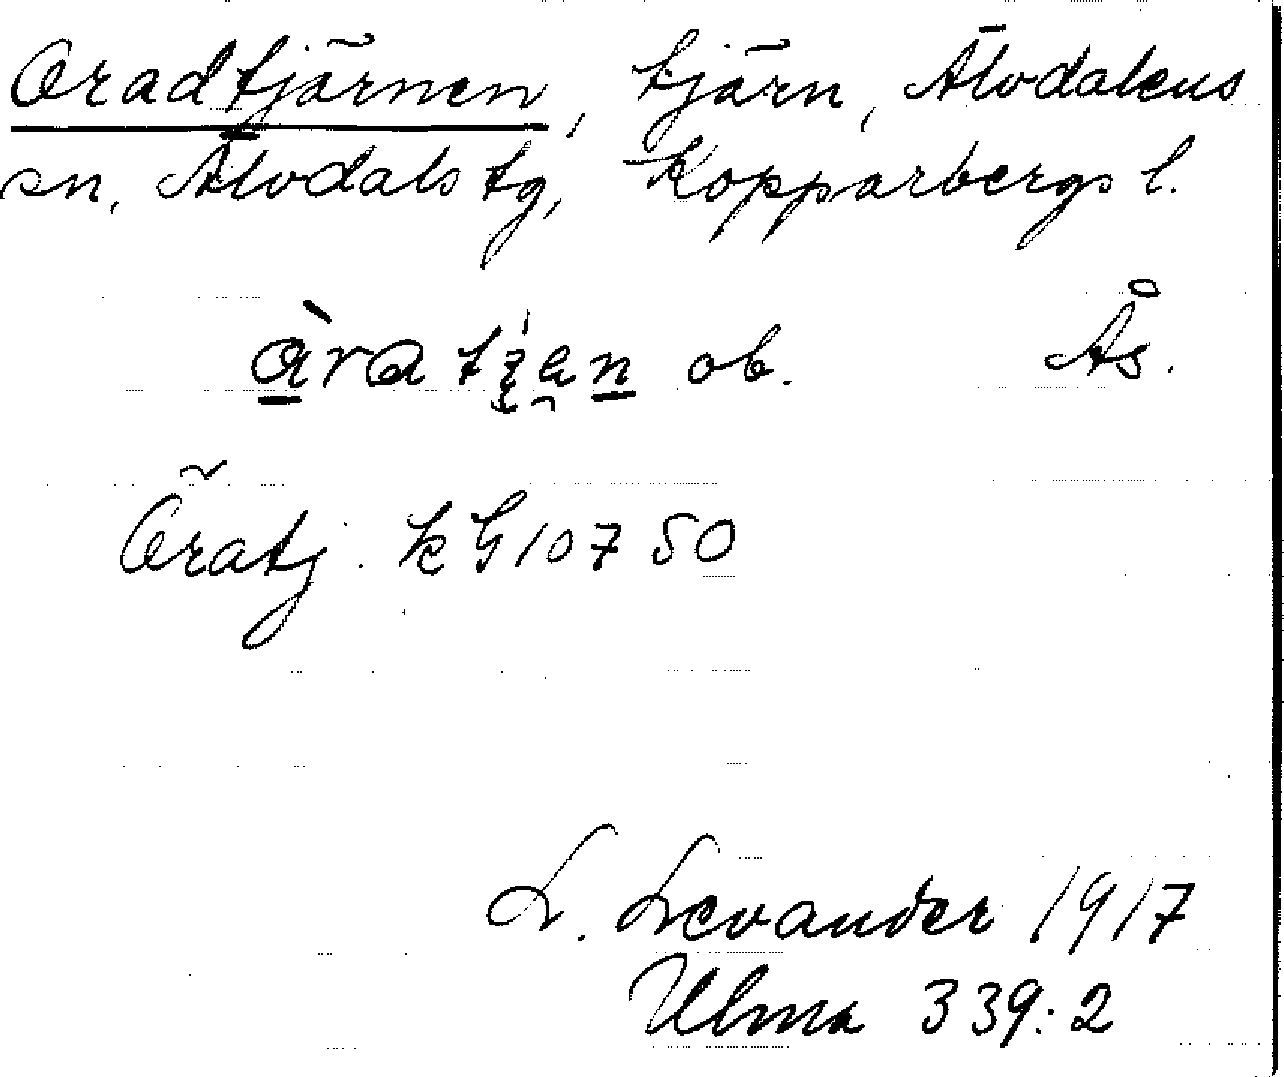 Oradtjärnen, tjärn, Älvdalens
sn, Älvdals tg, Kopparbergs l.
ob. Ås.
Öratj. kG 10750
L. Levander 1917
Ulma 339:2